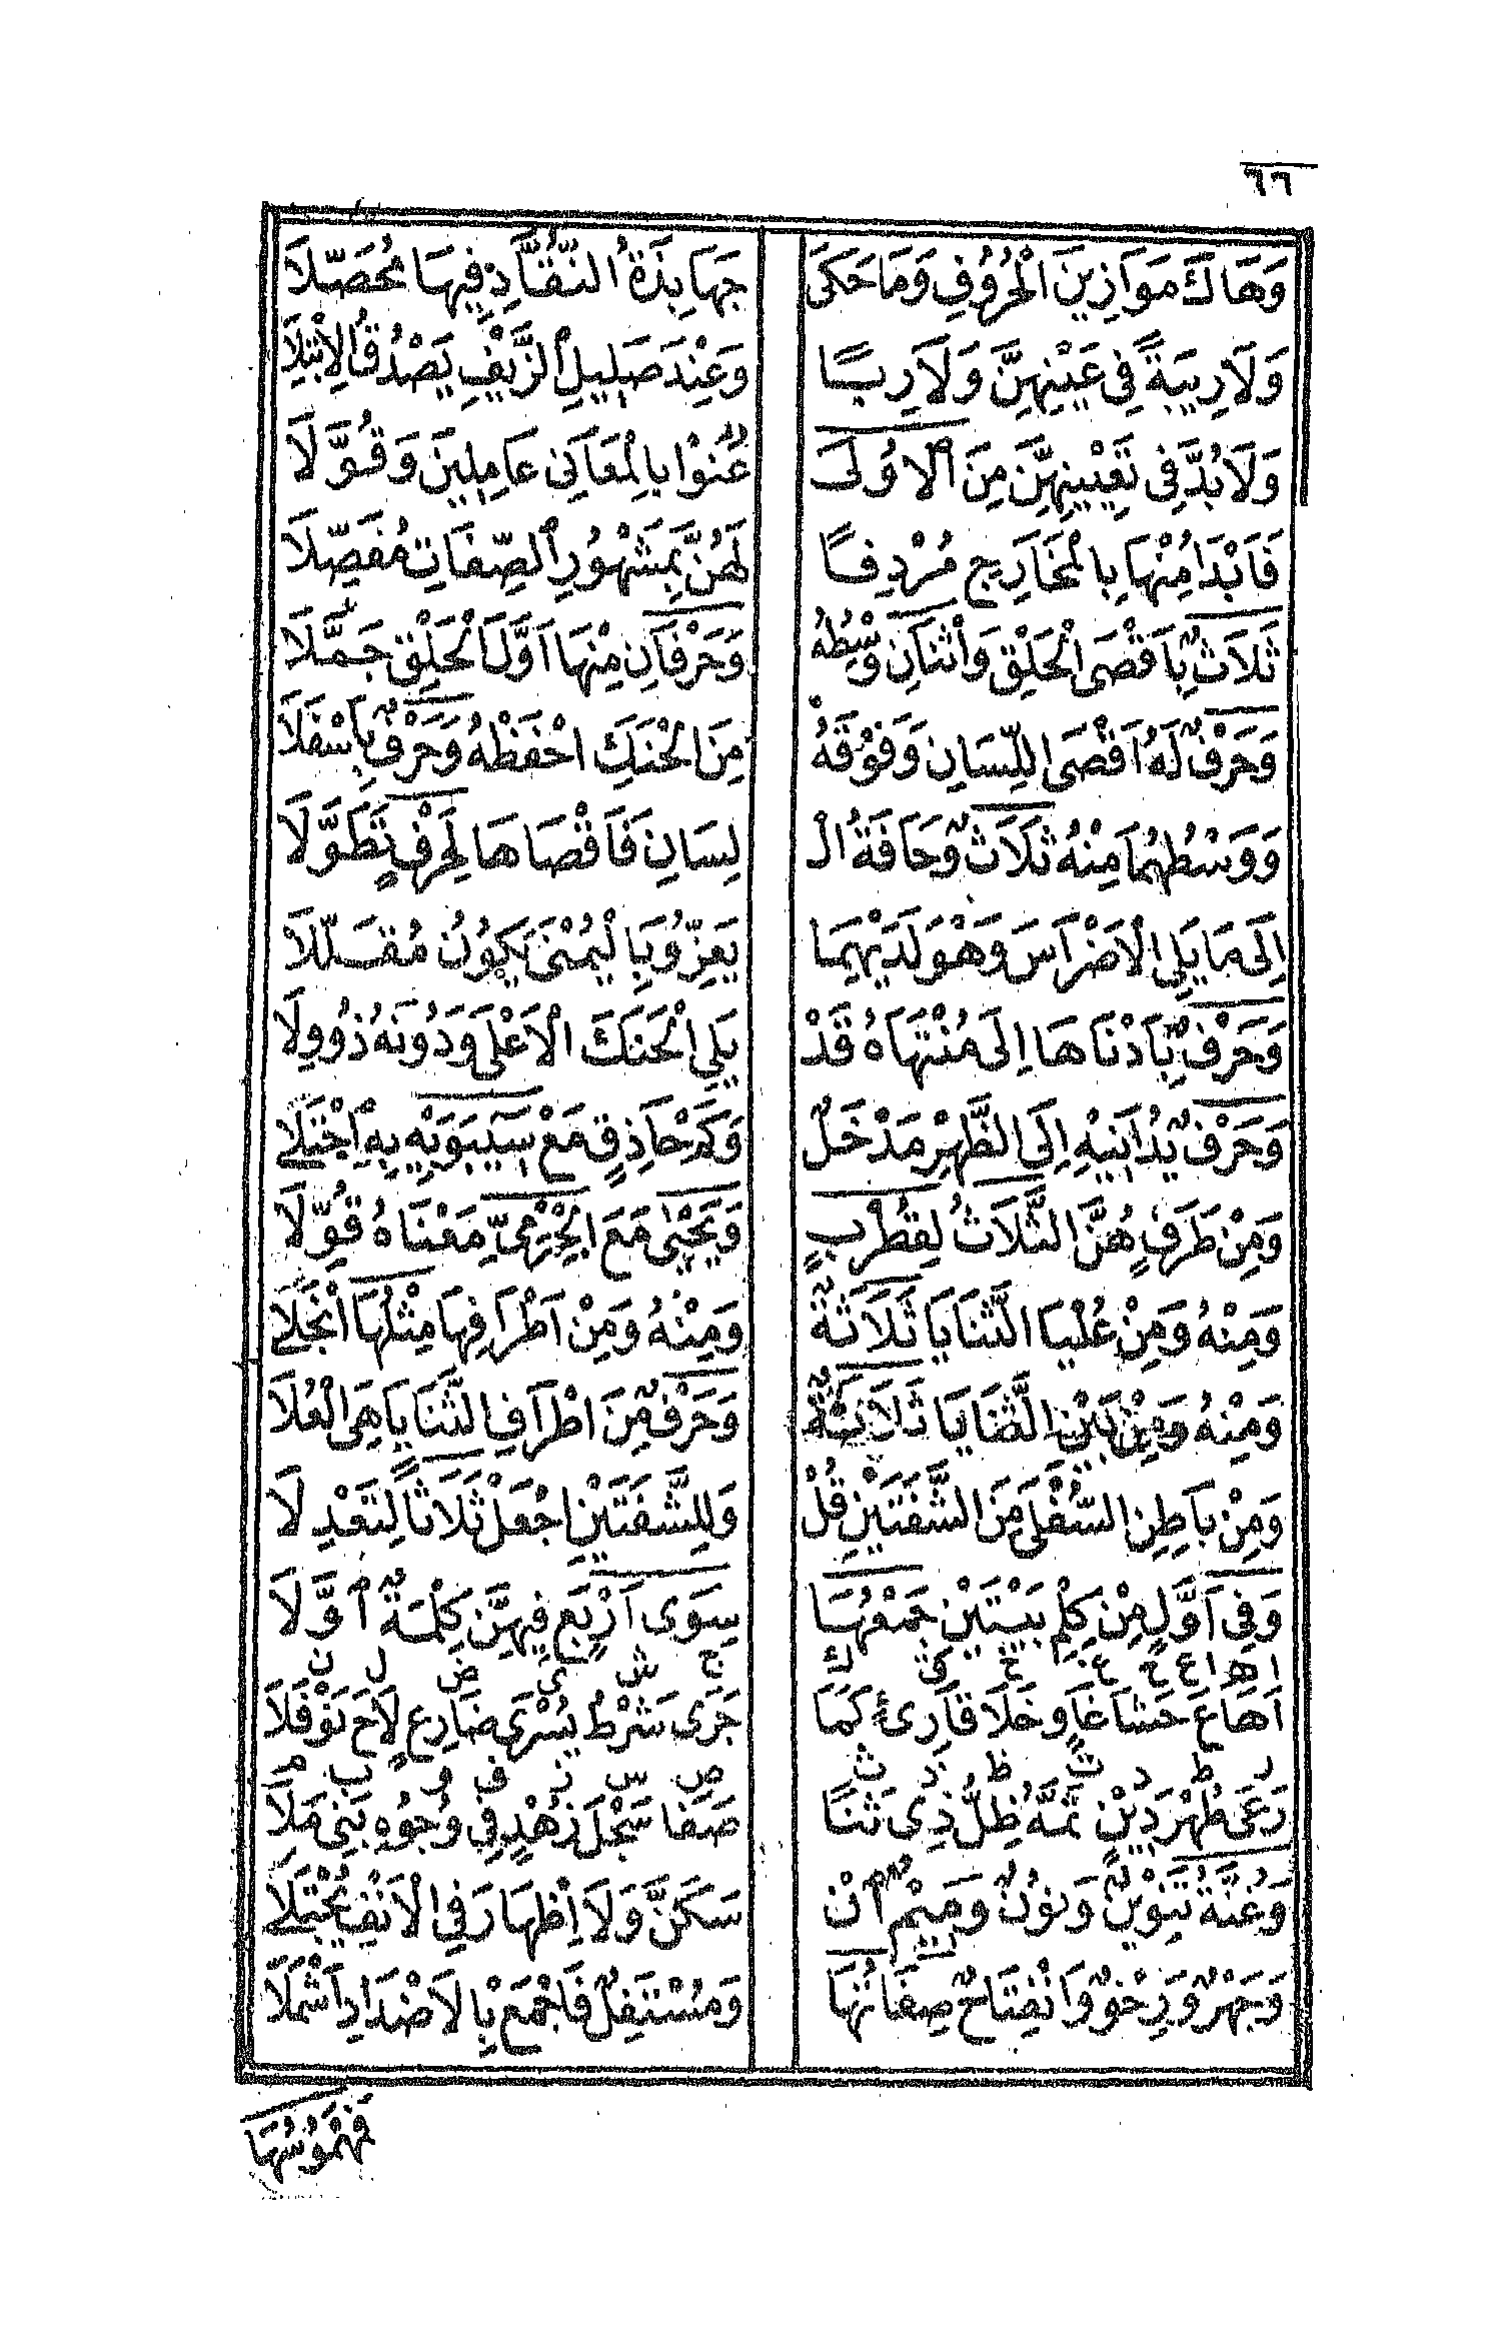 ٦٦
وَهَاكَ مَوَازِينَ الْحُرُوفِ وَمَا حَكَى جَهَابِذَةُ النُّقَّادِ فِيهَا مُحَصِّلَا
وَلَا رِيبَةً فِي عَيْنِهِنَّ وَلَا رِبًا وَعِنْدَ صَلِيلِ الزَّيْفِ يَصْدُقُ الِابْتِلَا
وَلَا بُدَّ فِي تَعْيِينِهِنَّ مِنَ الْأُولَى عُنُوا بِالْمَعَانِي عَامِلِينَ وَقُوَّلَا
فَابْدَأْ مِنْهَا بِالْمَخَارِجِ مُرْدِفًا لَهُنَّ بِمَشْهُورِ الصِّفَاتِ مُفَصِّلَا
ثَلَاثٌ بِأَقْصَى الْحَلْقِ وَاثْنَانِ وَسْطُهُ وَحَرْفَانِ مِنْهَا أَوَّلَ الْحَلْقِ جَمَّلَا
وَحَرْفٌ لَهُ أَقْصَى اللِّسَانِ وَفَوْقَهُ مِنَ الْحَنَكِ احْفَظْهُ وَحَرْفٌ بِأَسْفَلَا
وَوَسْطُهُمَا مِنْهُ ثَلَاثٌ وَحَافَةُ الْ لِسَانِ فَأَقْصَاهَا لِحَرْفٍ تَطَوَّلَا
إِلَى مَا يَلِي الْأَضْرَاسَ وَهْوَ لَدَيْهِمَا يَعِزُّ وَبِالْيُمْنَى يَكُونُ مُقَلَّلَا
وَحَرْفٌ بِأَدْنَاهَا إِلَى مُنْتَهَاهُ قَدْ يَلِي الْحَنَكَ الْأَعْلَى وَدُونَهُ ذُو وِلَا
وَحَرْفٌ يُدَانِيهِ إِلَى الظَّهْرِ مَدْخَلٌ وَكَمْ حَاذِقٍ مَعْ سِيبَوَيْهِ بِهِ اجْتَلَى
وَمِنْ طَرَفٍ هُنَّ الثَّلَاثُ لِقُطْرُبٍ وَيَحْيَى مَعَ الْجَرْمِيِّ مَعْنَاهُ قُوِّلَا
وَمِنْهُ وَمِنْ عُلْيَا الثَّنَايَا ثَلَاثَةٌ وَمِنْهُ وَمِنْ أَطْرَافِهَا مِثْلُهَا انْجَلَى
وَمِنْهُ وَمِنْ بَيْنِ الثَّنَايَا ثَلَاثَةٌ وَحَرْفٌ مِنَ اطْرَافِ الثَّنَايَا هِيَ الْعُلَا
وَمِنْ بَاطِنِ السُّفْلَى مِنَ الشَّفَتَيْنِ قُلْ وَلِلشَّفَتَيْنِ اجْعَلْ ثَلَاثًا لِتَعْدِلَا
وَفِي أَوَّلٍ مِنْ كِلْمِ بَيْتَيْنِ جَمْعُهَا سِوَى أَرْبَعٍ فِيهِنَّ كِلْمَةٌ أَوَّلَا
ا ه ا ع ح غ خ ق ك ج ش ي ض ل ن
أَهَاعَ حَشَا غَاوٍ خَلَا قَارِئٌ كَمَا جَرَى شَرْطُ يُسْرَى ضَارِعٍ لَاحَ نَوْفَلَا
ر ط د ت ظ ذ ث ص س ز ف و ب م
رَعَى طُهْرَ دِينٍ تَمَّهُ ظِلُّ ذِي ثَنَا صَفَا سَجْلُ زُهْدٍ فِي وُجُوهِ بَنِي مَلَا
وَغُنَّةُ تَنْوِينٍ وَنُونٌ وَمِيمٌ أَنْ سَكَنَّ وَلَا إِظْهَارَ فِي الْأَنْفِ يُجْتَلَى
وَجَهْرٌ وَرِخْوٌ وَانْفِتَاحٌ صِفَاتُهَا وَمُسْتَفِلٌ فَاجْمَعْ بِالْأَضْدَادِ أَشْمُلَا
فَمَهْمُوسُهَا